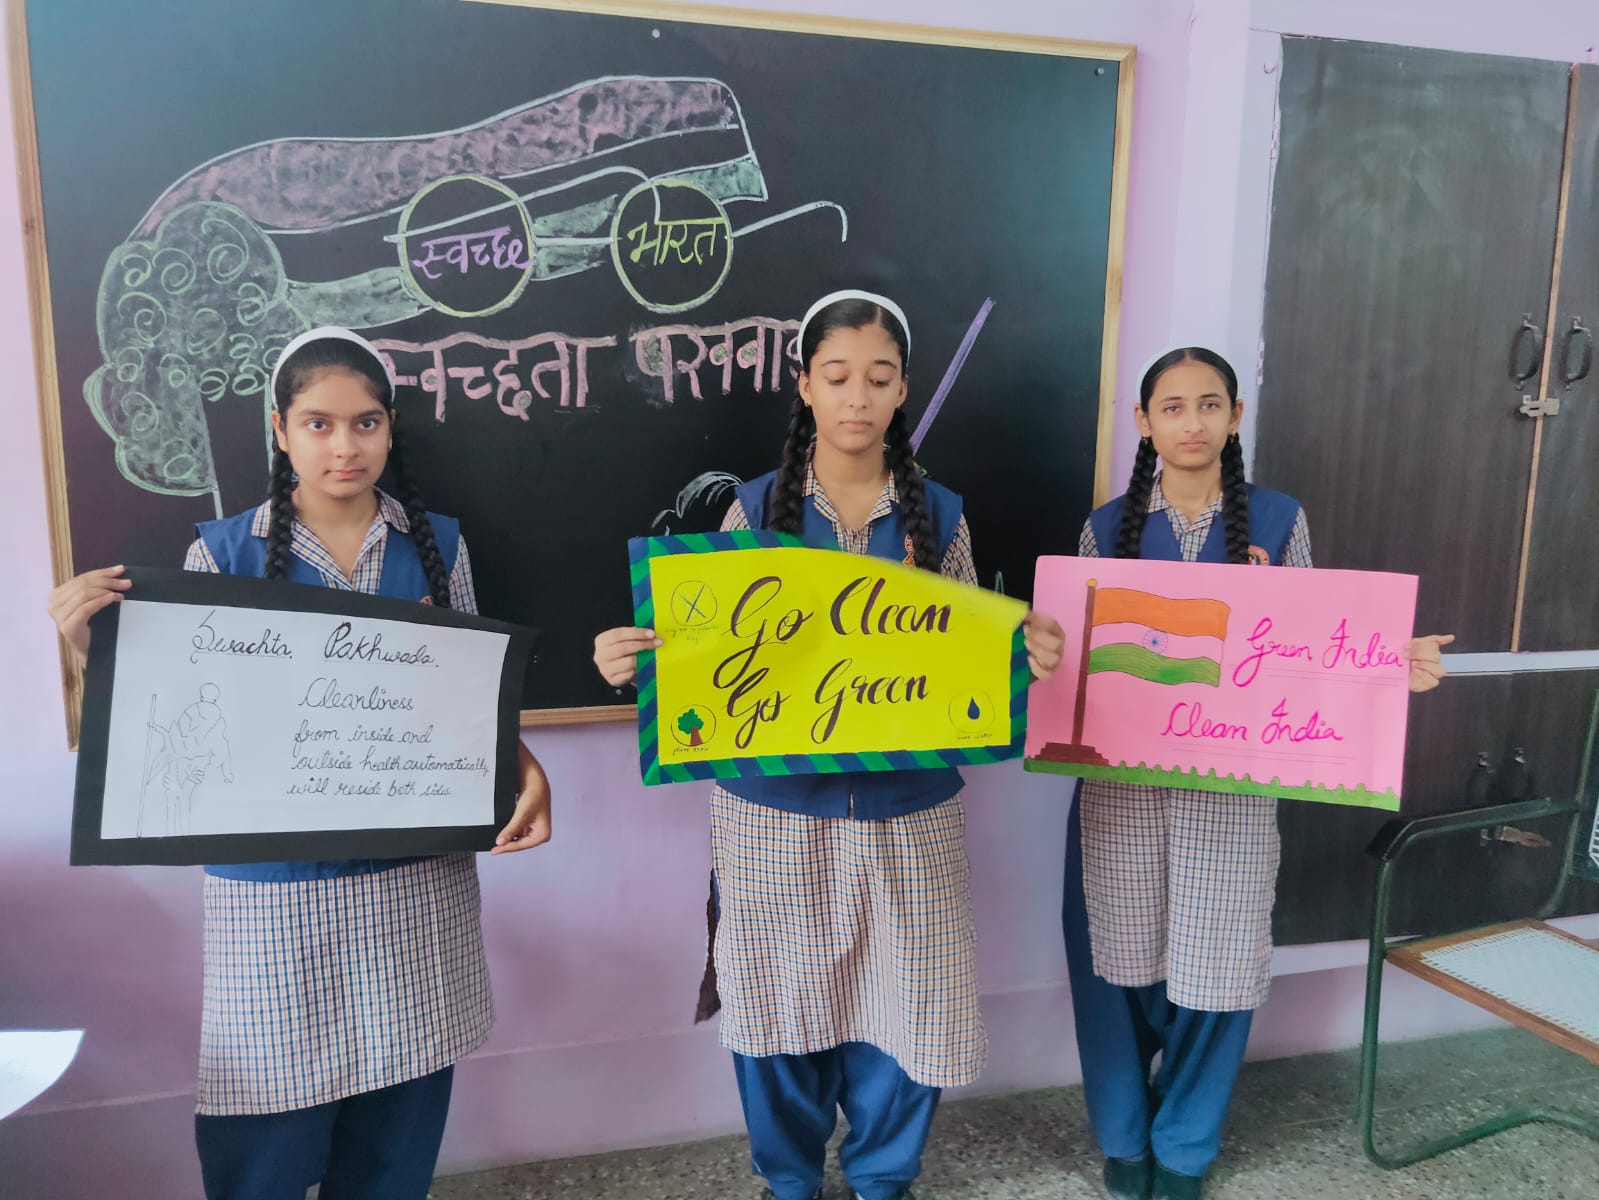 स्वच्छ
भारत
स्वच्छता पखवाड़
Swachta. Pakhwada.
Cleanliness
from inside and
outside health automatically
will reside both sides
Go Clean
Go Green
plant trees
save water
Green India
Clean India